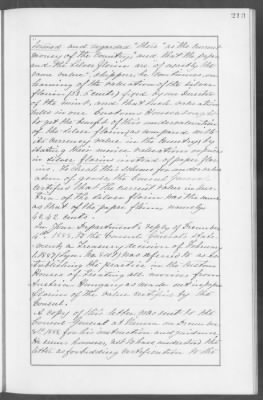 213
and regarded there as the current
money of the Country, and that the paper
and the silver florin are of exactly the
same value. Shippers to
learning of the valuation of the silver
florin, (33.6 cents) fixed by our Director
of the mint, and that such valuation
rules in our Customs Houses
to get the benefit of this undervaluation
of the silver florin, as compared with
its currency value in the Country, by
stating their invoice valuations
in silver florins instead of paper flor-
ins. To check this scheme for undervalu-
ation of goods, the Consul General
certified that the current value in Aus-
tria of the silver florin was the same
as that of the paper florin namely
cents.
In the Department's reply of December
1888, to the Consul General's state-
ments a Treasury decision of February
1, 1887 was referred to as es-
tablishing the practice in the Custom
Houses of treating all invoices from
Austria Hungary as made out in paper
florins of the value certified by the
Consul.
A copy of this letter was sent to the
Consul General at Vienna on December
1888, for his instruction and guidance.
He seems however, not to have understood the
letter as forbidding certification to the